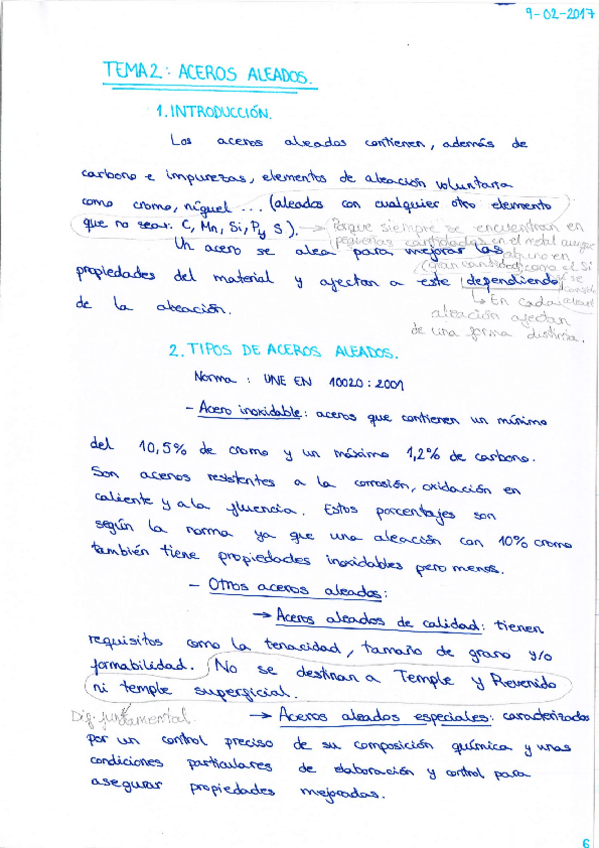 9-02-2017
TEMA 2: ACEROS ALEADOS.
1. INTRODUCCIÓN.
Los aceros aleados contienen, además de
carbono e impurezas, elementos de aleación voluntaria
como cromo, níquel ... (aleados con cualquier otro elemento
que no sean: C, Mn, Si, P y S). → Porque siempre se encuentran en
pequeñas cantidades en el metal aunque
alguno en
gran cantidad como el Si
Un acero se alea para mejorar las
propiedades del material y afectan a este dependiendo
de la aleación.
↳ En cada
aleación afectan
de una forma distinta.
2. TIPOS DE ACEROS ALEADOS.
Norma: UNE EN 10020:2001
- Acero inoxidable: aceros que contienen un mínimo
del 10,5% de cromo y un máximo 1,2% de carbono.
Son aceros resistentes a la corrosión, oxidación en
caliente y a la fluencia. Estos porcentajes son
según la norma ya que una aleación con 10% cromo
también tiene propiedades inoxidables pero menos.
- Otros aceros aleados:
→ Aceros aleados de calidad: tienen
requisitos como la tenacidad, tamaño de grano y/o
formabilidad. No se destinan a Temple y Revenido
ni temple superficial.
Dif. fundamental.
→ Aceros aleados especiales: caracterizados
por un control preciso de su composición química y unas
condiciones particulares de elaboración y control para
asegurar propiedades mejoradas.
6